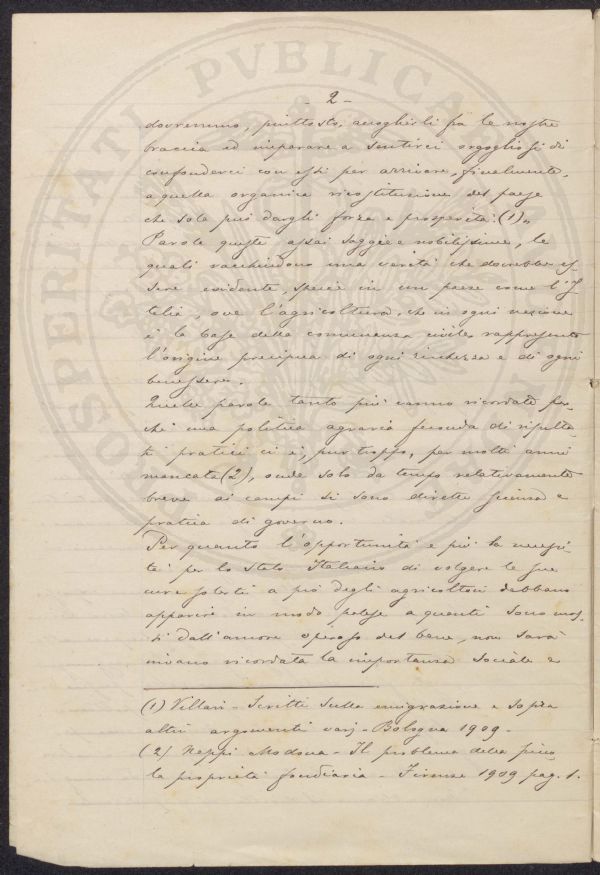 - 2 -
dovremmo, piuttosto, accoglierli fra le nostre
braccia ed imparare a sentirci orgogliosi di
confonderci con essi per arrivare, finalmente,
a quella organica ricostituzione del paese
che sola può dargli forza e prosperità. (1) „
Parole queste assai saggie e nobilissime, le
quali racchiudono una verità che dovrebbe es-
sere evidente, specie in un paese come l'I-
talia, ove l'agricoltura, che in ogni nazione
è la base della convivenza civile, rappresenta
l'origine precipua di ogni ricchezza e di ogni
benessere.
Quelle parole tanto più vanno ricordate per-
chè una politica agraria feconda di risulta-
ti pratici ci è, pur troppo, per molti anni
mancata (2), onde solo da tempo relativamente
breve ai campi si sono dirette scienza e
pratica di governo.
Per quanto l'opportunità e più la necessi-
tà per lo Stato Italiano di volgere le sue
cure solerti a pro degli agricoltori debbano
apparire in modo palese a quanti sono mos-
si dall'amore operoso del bene, non sarà
invano ricordata la importanza sociale e
(1) Villari - Scritti sulla emigrazione e sopra
altri argomenti varj - Bologna 1909 -
(2) Nappi Modona - Il problema della picco-
la proprietà fondiaria - Firenze 1909 pag. 1.
PROSPERITATI PVBLICAE